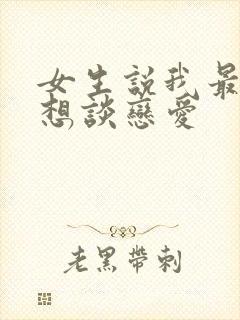 女生説我最
想談戀愛
老黑帶刺